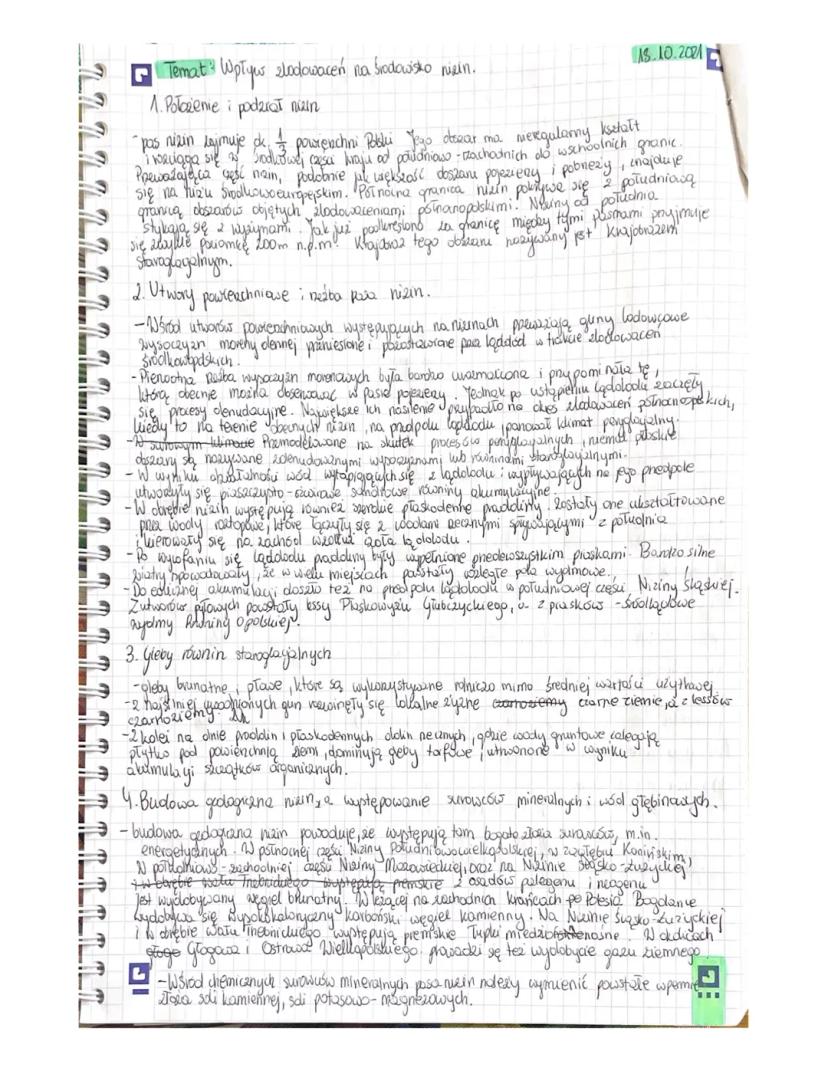 18.10.2021
Temat: Wpływ zlodowaceń na środowisko nizin.
1. Położenie i podział nizin
- pas nizin zajmuje ok. 1/3 powierzchni Polski Jego obszar ma nieregularny kształt
i rozciąga się w środkowej części kraju od południowo-zachodnich do wschodnich granic.
Przeważająca część nizin, podobnie jak większość obszaru pojezierzy i pobrzeży, znajduje
się na Niżu Środkowoeuropejskim. Północna granica nizin pokrywa się z południową
granicą obszarów objętych zlodowaceniami północnopolskimi. Niziny od południa
stykają się z wyżynami. Jak już podkreślono za granicę między tymi pasmami przyjmuje
się zwykle poziomicę 200m n.p.m. Krajobraz tego obszaru nazywany jest krajobrazem
staroglacjalnym.
2. Utwory powierzchniowe i rzeźba pasa nizin.
- Wśród utworów powierzchniowych występujących na nizinach przeważają gliny lodowcowe
wysoczyzn moreny dennej przniesione i pozostawione przez lądolód w trakcie zlodowaceń
środkowopolskich.
- Pierwotna rzeźba wysoczyzn morenowych była bardzo urozmaicona i przypominała tę,
którą obecnie można obserwować w pasie pojezierzy. Jednak po ustąpieniu lądolodu zaczęły
się procesy denudacyjne. Największe ich nasilenie przypadło na okres zlodowaceń północnopolskich,
kiedy to na terenie obecnych nizin, na przedpolu lądolodu panował klimat peryglacjalny.
- W surowym klimacie Przemodelowane na skutek procesów peryglacjalnych, niemal płaskie
obszary są nazywane zdenudowanymi wysoczyznami lub równinami staroglacjalnymi.
- W wyniku działalności wód wytapiających się z lądolodu i wypływających na jego przedpole
utworzyły się piaszczysto-żwirowe sandrowe równiny akumulacyjne.
- W obrębie nizin występują również szerokie płaskodenne pradoliny. Zostały one ukształtowane
przez wody roztopowe, które łączyły się z wodami rzecznymi spływającymi z południa
i kierowały się na zachód wzdłuż czoła lądolodu.
- Po wycofaniu się lądolodu pradoliny były wypełnione przedewszystkim piaskami. Bardzo silne
wiatry spowodowały, że w wielu miejscach powstały rozległe pola wydmowe.
- Do eolicznej akumulacji doszło też na przedpolu lądolodu w południowej części Niziny Śląskiej.
Z utworów pyłowych powstały lessy Płaskowyżu Głubczyckiego, a z piasków - śródlądowe
wydmy Równiny Opolskiej.
3. Gleby równin staroglacjalnych
- gleby brunatne i płowe, które są wykorzystywane rolniczo mimo średniej wartości użytkowej
- z najsilniej uwodnionych glin rozwinęły się lokalne żyzne czarnoziemy czarne ziemie, a z lessów
czarnoziemy.
- Z kolei na dnie pradolin i płaskodennych dolin rzecznych, gdzie wody gruntowe zalegają
płytko pod powierzchnią ziemi, dominują gleby torfowe, utworzone w wyniku
akumulacji szczątków organicznych.
4. Budowa geologiczna nizin, a występowanie surowców mineralnych i wód głębinowych.
- budowa geologiczna nizin powoduje, że występują tam bogate złoża surowców, m.in.
energetycznych. W północnej części Niziny Południowowielkopolskiej, w Zagłębiu Konińskim,
W południowo-zachodniej części Niziny Mazowieckiej, oraz na Nizinie Śląsko-Łużyckiej
i w obrębie wału Trzebnickiego występują permskie z osadów paleogenu i neogenu
jest wydobywany węgiel brunatny. W leżącej na zachodnich krańcach Polesia Bogdance
wydobywa się wysokokaloryczny karboński węgiel kamienny. Na Nizinie Śląsko-Łużyckiej
i w obrębie Wału Trzebnickiego występują permskie łupki miedzionośne. W okolicach
Głogowa i Ostrowa Wielkopolskiego prowadzi się też wydobycie gazu ziemnego
- Wśród chemicznych surowców mineralnych pasa nizin należy wymienić powstałe w permie
złoża soli kamiennej, soli potasowo-magnezowych.